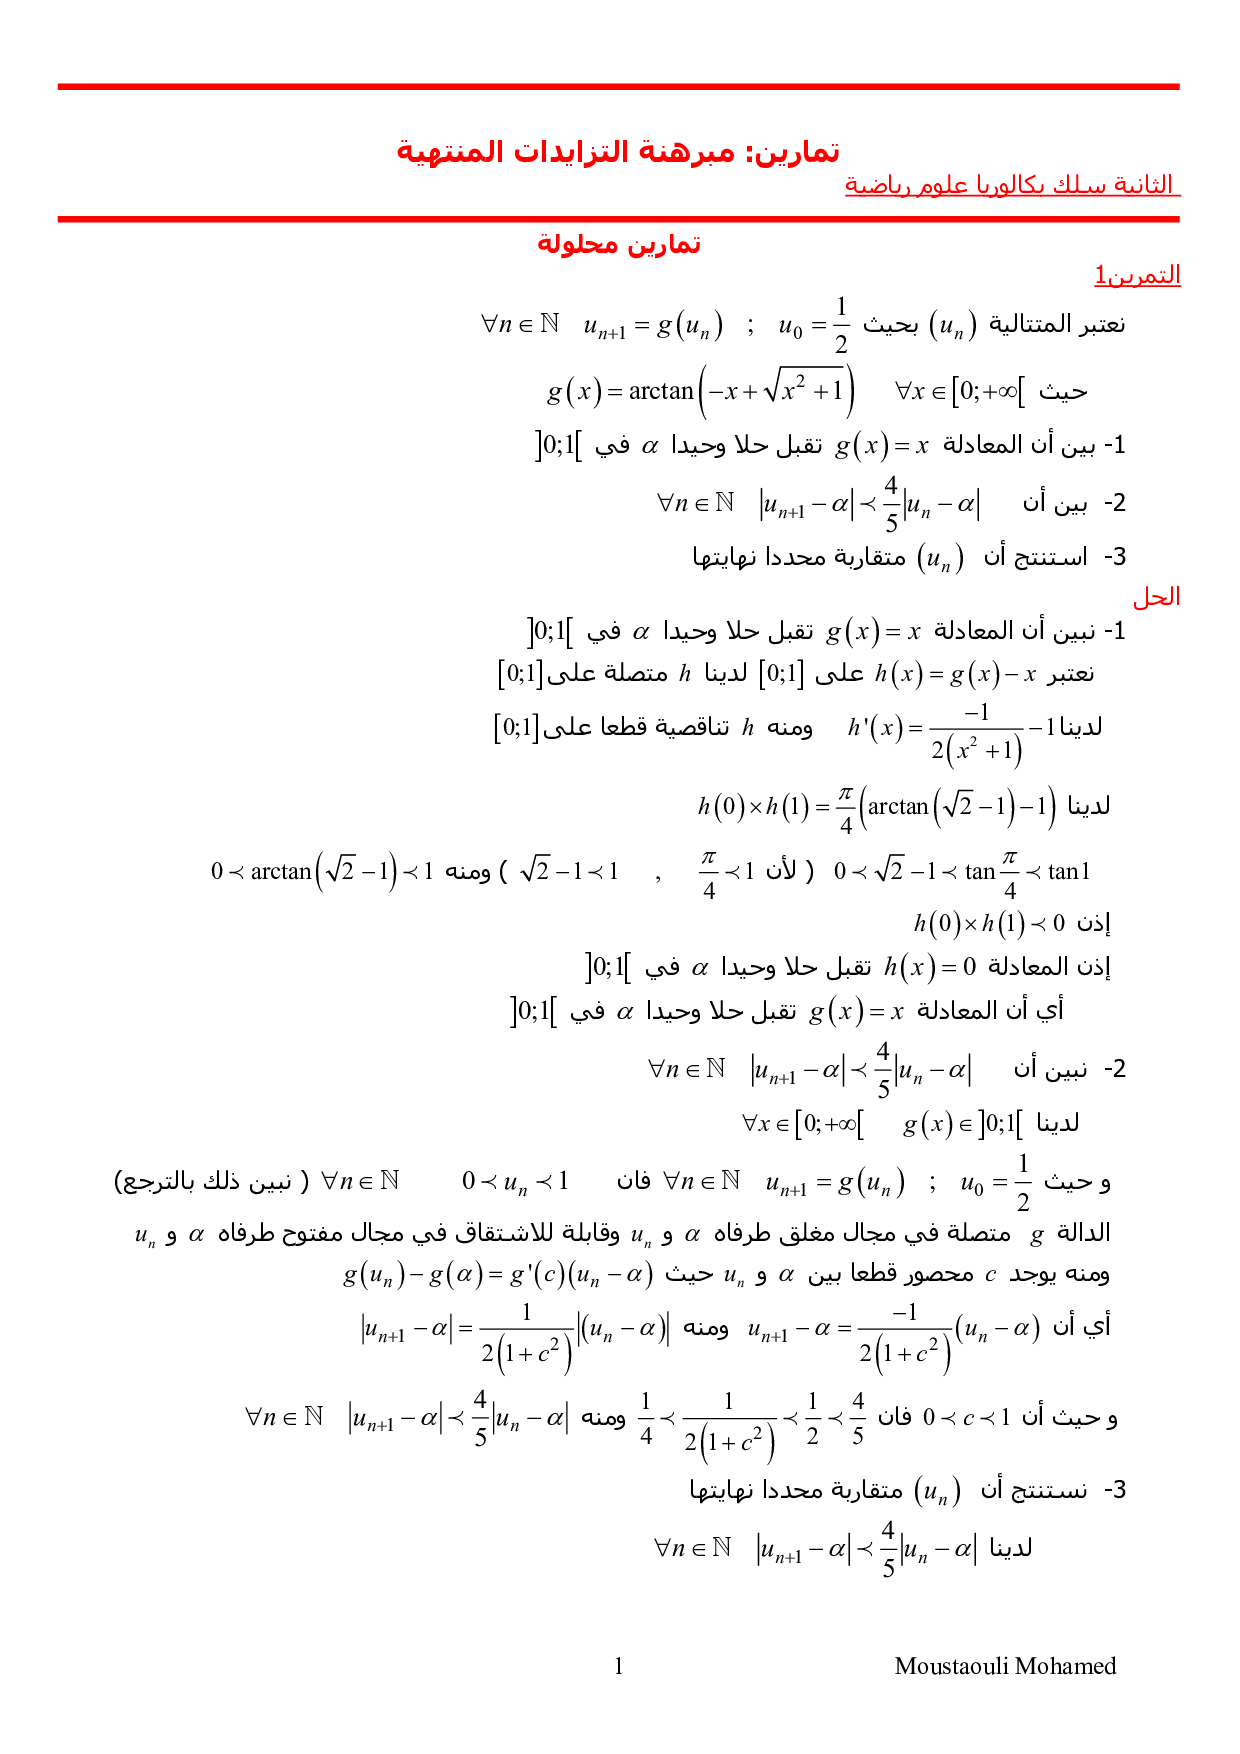 تمارين: مبرهنة التزايدات المنتهية
الثانية سلك بكالوريا علوم رياضية
تمارين محلولة
التمرين1
نعتبر المتتالية (u_n) بحيث ∀n ∈ ℕ u_{n+1} = g(u_n) ; u_0 = 1/2
حيث g(x) = arctan(−x + √(x² + 1)) ∀x ∈ [0;+∞[
1- بين أن المعادلة g(x) = x تقبل حلا وحيدا α في ]0;1[
2- بين أن ∀n ∈ ℕ |u_{n+1} − α| ≺ 4/5 |u_n − α|
3- استنتج أن (u_n) متقاربة محددا نهايتها
الحل
1- نبين أن المعادلة g(x) = x تقبل حلا وحيدا α في ]0;1[
نعتبر h(x) = g(x) − x على [0;1] لدينا h متصلة على [0;1]
لدينا h'(x) = −1/(2(x² + 1)) − 1 ومنه h تناقصية قطعا على [0;1]
لدينا h(0) × h(1) = π/4 (arctan(√2 − 1) − 1)
0 ≺ √2 − 1 ≺ tan π/4 ≺ tan1 ( لأن π/4 ≺ 1 , √2 − 1 ≺ 1 ) ومنه 0 ≺ arctan(√2 − 1) ≺ 1
إذن h(0) × h(1) ≺ 0
إذن المعادلة h(x) = 0 تقبل حلا وحيدا α في ]0;1[
أي أن المعادلة g(x) = x تقبل حلا وحيدا α في ]0;1[
2- نبين أن ∀n ∈ ℕ |u_{n+1} − α| ≺ 4/5 |u_n − α|
لدينا ∀x ∈ [0;+∞[ g(x) ∈ ]0;1[
و حيث ∀n ∈ ℕ u_{n+1} = g(u_n) ; u_0 = 1/2 فان ∀n ∈ ℕ 0 ≺ u_n ≺ 1 ( نبين ذلك بالترجع)
الدالة g متصلة في مجال مغلق طرفاه α و u_n وقابلة للاشتقاق في مجال مفتوح طرفاه α و u_n
ومنه يوجد c محصور قطعا بين α و u_n حيث g(u_n) − g(α) = g'(c)(u_n − α)
أي أن u_{n+1} − α = −1/(2(1 + c²)) (u_n − α) ومنه |u_{n+1} − α| = 1/(2(1 + c²)) |(u_n − α)|
و حيث أن 0 ≺ c ≺ 1 فان 1/4 ≺ 1/(2(1 + c²)) ≺ 1/2 ≺ 4/5 ومنه ∀n ∈ ℕ |u_{n+1} − α| ≺ 4/5 |u_n − α|
3- نستنتج أن (u_n) متقاربة محددا نهايتها
لدينا ∀n ∈ ℕ |u_{n+1} − α| ≺ 4/5 |u_n − α|
1 Moustaouli Mohamed